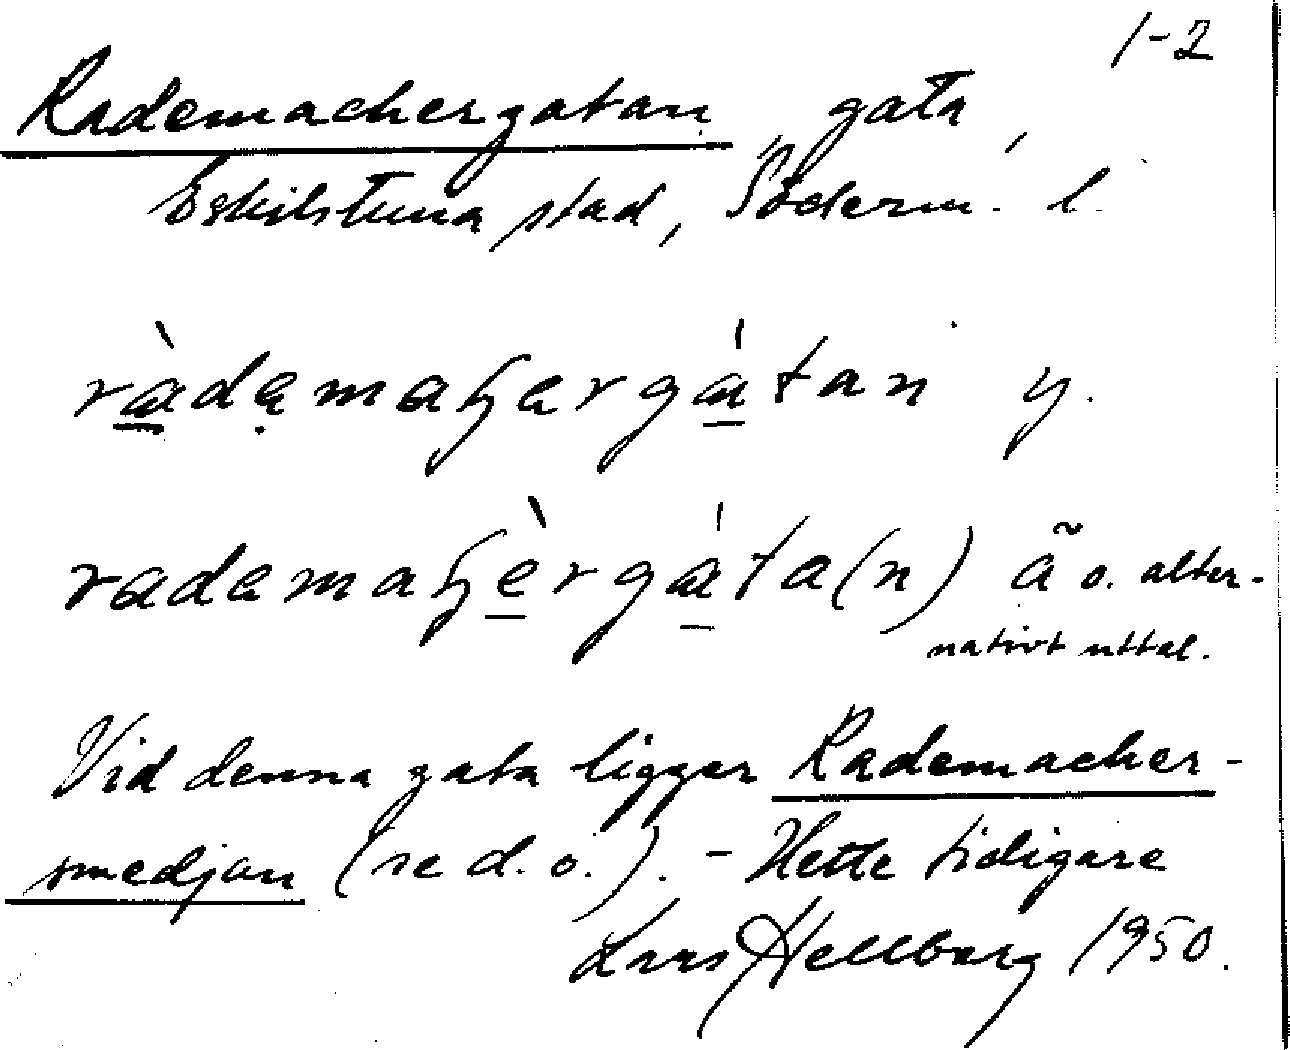 1-2
Rademachergatan gata,
Eskilstuna stad, Söderm. l.
ràdẹmaꜧergátan y.
rademaꜧèrgáta(n) ã o. alter-
nativt uttal.
Vid denna gata ligger Rademacher-
smedjan (se d. o.). - Hette tidigare
Lars Hellberg 1950.